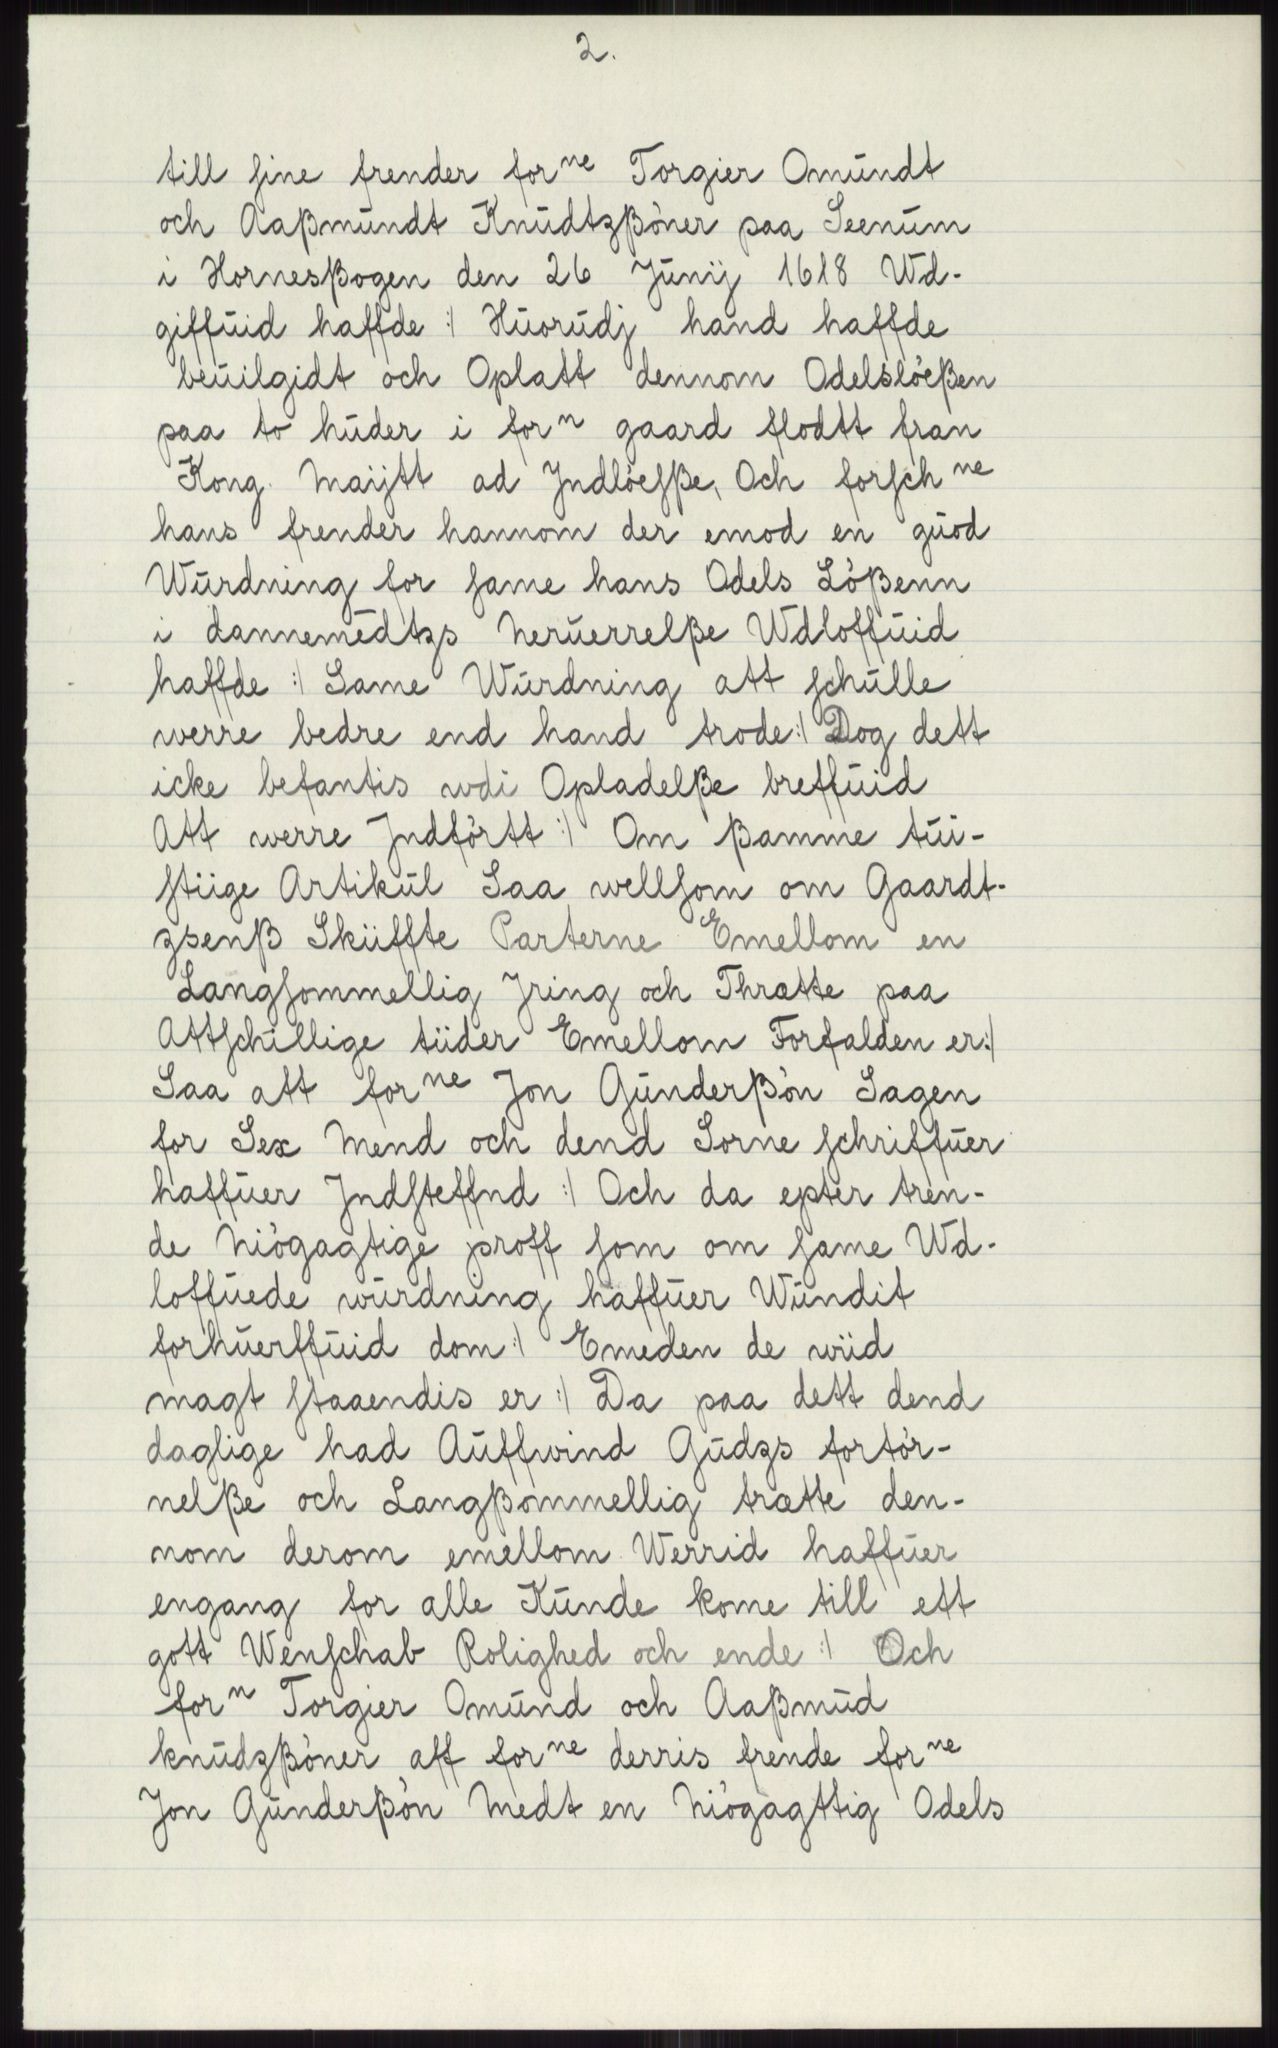 2.
till sine frender forne Torgier Omundt
och Aaßmundt Knudtzßöner paa Seenum
i Hornesßogen den 26 Junij 1618 Wd-
giffuid haffde :/ Huorudj hand haffde
beuilgidt och Oplatt dennom Odelslöeßen
paa to huder i forn gaard flodtt fran
Kong. Maijtt ad Jndlöesße, Och forschne
hans frender hannom der emod en guod
Wurdning for same hans Odels Lößenn
i dannemedtzs neruerrelße Wdloffuid
haffde :/ Same Wurdning att schulle
werre bedre end hand trode :/ Dog dett
icke befantis wdi Opladelße breffuid
Att werre Jndförtt :/ Om ßamme tui-
stiige Artikul Saa wellsom om Gaardt-
zsenß Skiiffte Parterne Emellom en
Langsommellig Jring och Thrætte paa
Attschillige tiider Emellom Forfalden er :/
Saa att forne Jon Gunderßön Sagen
for Sex Mend och dend Sorne schriffuer
haffuer Jndsteffnd :/ Och da epter tren-
de Niögagtige proff som om same Wd-
loffuede wurdning haffuer Wundit
forhuerffuid dom :/ Emeden de wiid
magt staaendis er :/ Da paa dett dend
daglige had Auffwind Gudzs fortör-
nelße och Langßommellig trætte den-
nom derom emellom Werrid haffuer
engang for alle Kunde kome till ett
gott Wenschab Rolighed och ende :/ Och
forn Torgier Omund och Aaßmud
knudzßöner aff forne derris frende forne
Jon Gunderßön Medt en Niögagttig Odels